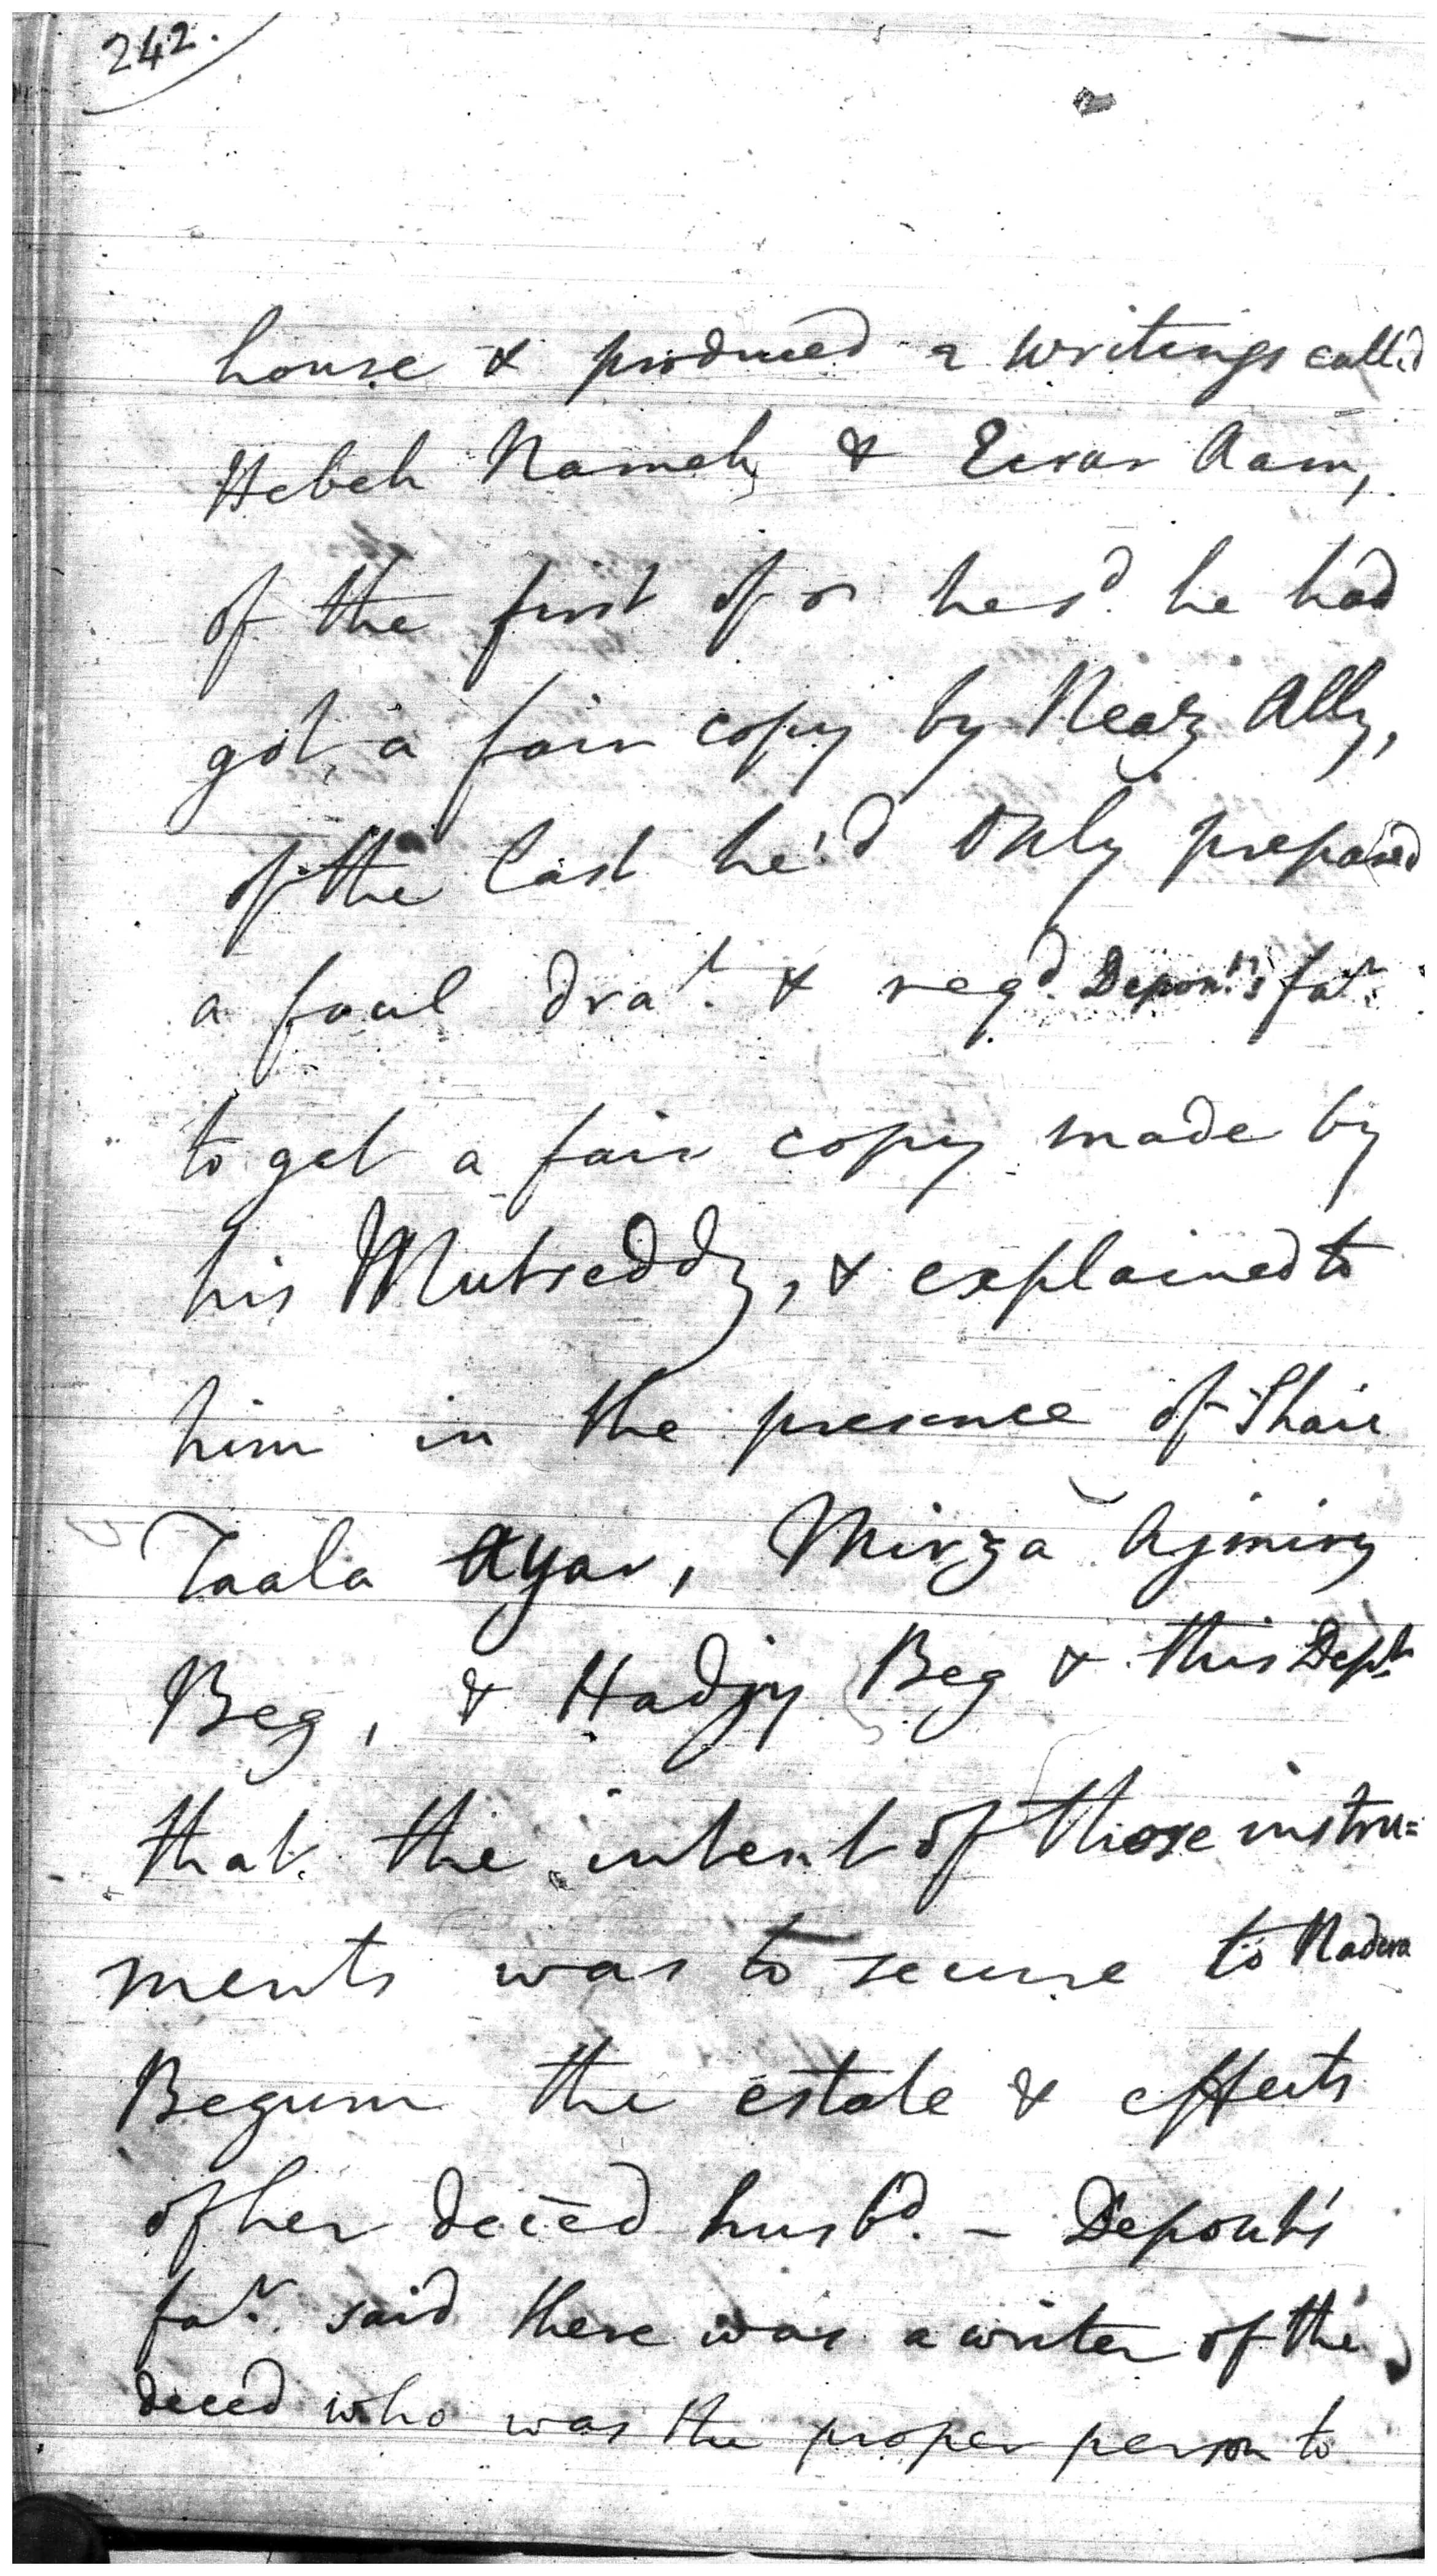 242.
house & produced a writings call'd
Hebeh Nameh & Eirar Aam,
of the first of he s.d he had
got a fair copy by Neaz Ally,
of the last he'd only prepared
a foul dra.t & req.d Depon.t's fa.r
to get a fair copy made by
his Mutseddy, & explained to
him in the presence of Shair
Taala Ayar, Mirza Ajmiry
Beg, & Hadjy Beg & this Dep.t
that the intent of those instru=
ments was to secure to Nadera
Begum the estate & effects
of her deced husb.d - Deponts
fa.r said there was a writer of the
deced who was the proper person to